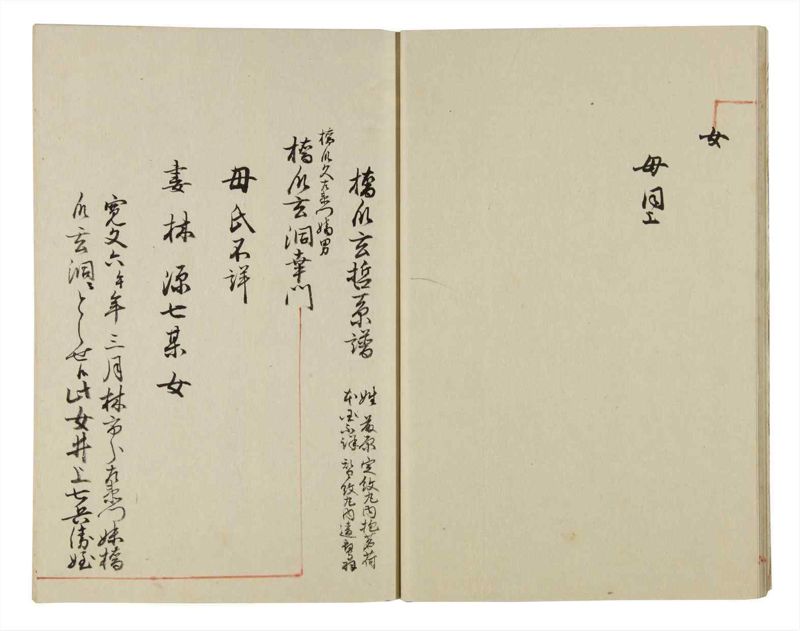 女
母同上
橋爪玄哲系譜
姓 藤原 定紋丸内抱茗荷
本国不詳 替紋丸内違
橋爪久左衛門嫡男
橋爪玄洞幸門
母氏不詳
妻 林 源七某女
寛文六午年三月林市郎左衛門妹橋
爪玄洞
女井上七兵衛姪